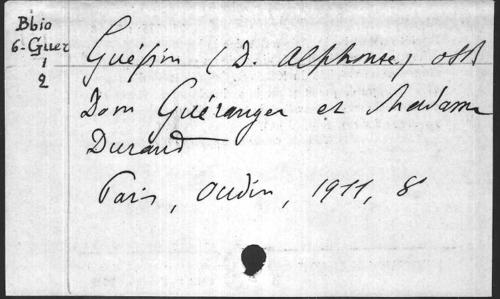 Bbio
6-Guer
1
2
Guépin (D. Alphonse) osb
Dom Guéranger et Madame
Durand
Paris, Oudin, 1911, 8